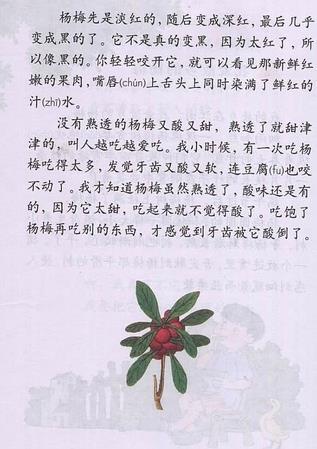 杨梅先是淡红的，随后变成深红，最后几乎
变成黑的了。它不是真的变黑，因为太红了，所
以像黑的。你轻轻咬开它，就可以看见那新鲜红
嫩的果肉，嘴唇(chún)上舌头上同时染满了鲜红的
汁(zhī)水。
没有熟透的杨梅又酸又甜，熟透了就甜津
津的，叫人越吃越爱吃。我小时候，有一次吃杨
梅吃得太多，发觉牙齿又酸又软，连豆腐(fu)也咬
不动了。我才知道杨梅虽然熟透了，酸味还是有
的，因为它太甜，吃起来就不觉得酸了。吃饱了
杨梅再吃别的东西，才感觉到牙齿被它酸倒了。